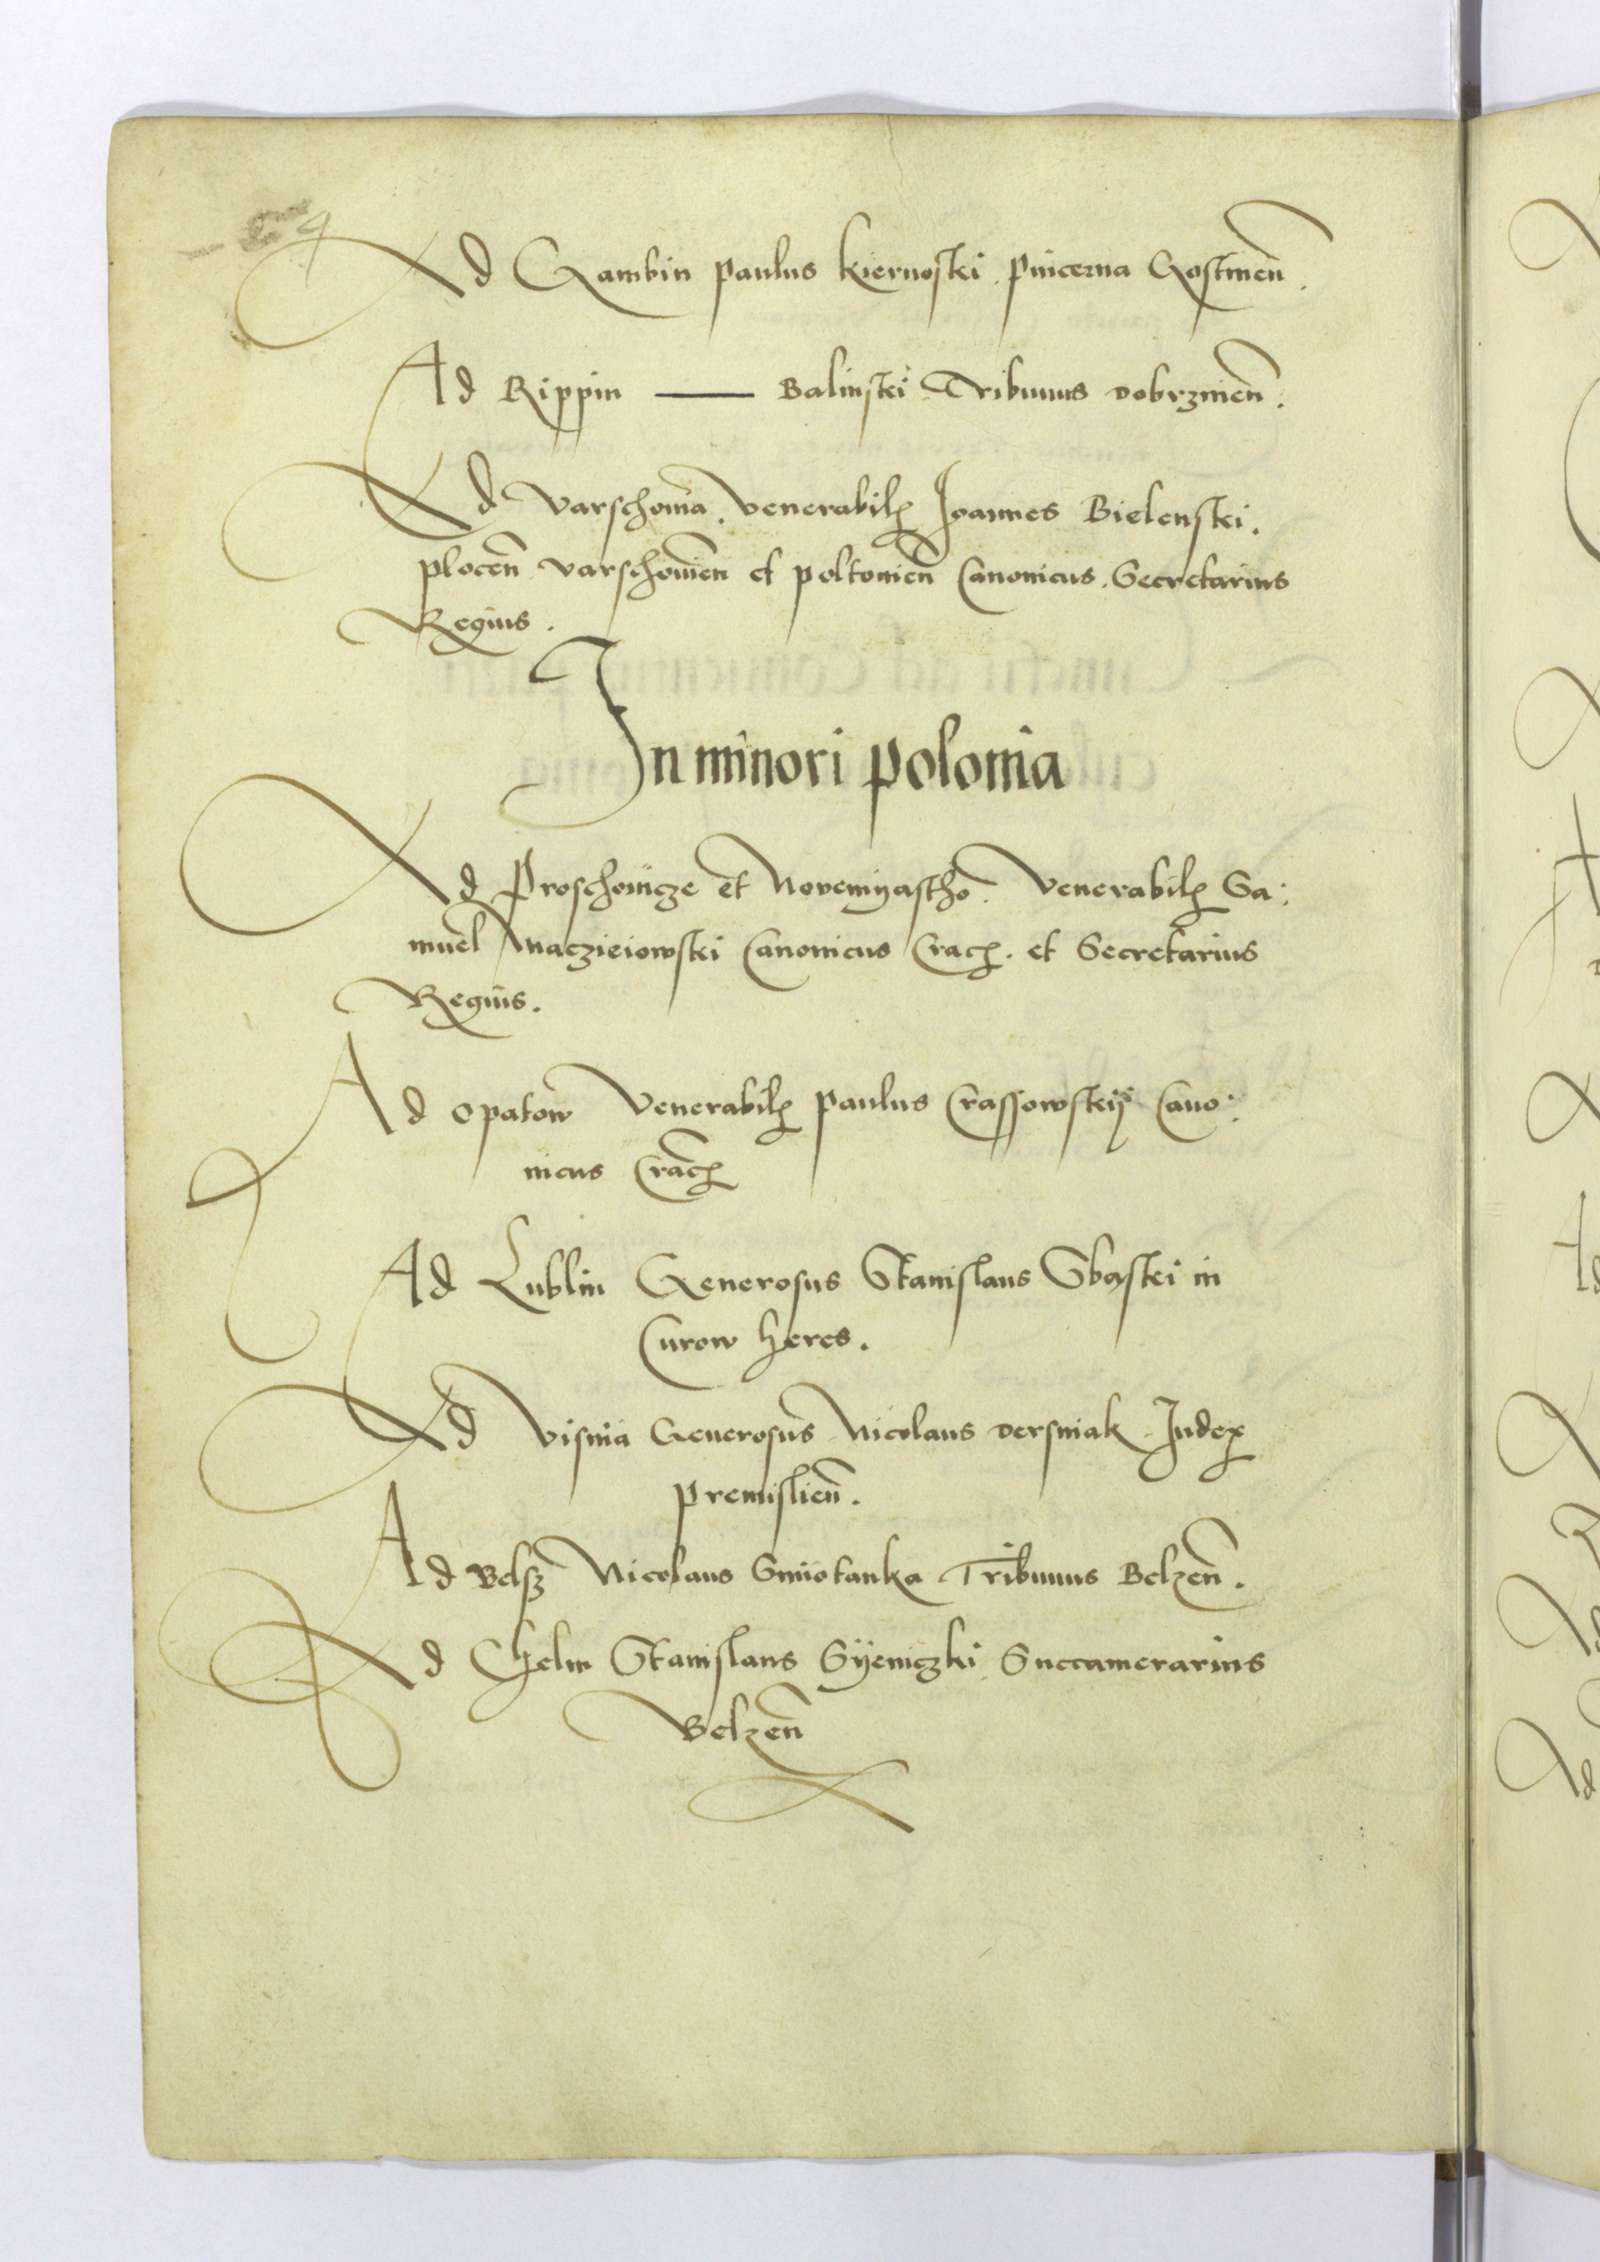 Ad Gambin paulus kiernoski pincerna Gostinen̄.
Ad Rippin — Balinski Tribunus dobrzinen̄.
Ad Varschovia. Venerabilꝭ Joannes Bielenski.
plocen̄ varschovien̄ et poltovien̄ Canonicus. Secretarius
Regius.
In minori polonia
Ad Proschovicze et Novemyastho. Venerabilꝭ Sa:
muel Maczieiowski Canonicus Cracꝭ. et Secretarius
Regius.
Ad Opatow Venerabilꝭ paulus Crassowskij Cano:
nicus Cracꝭ
Ad Lublin Generosus Stanislaus Sbaski in
Curow heres.
Ad visnia Generosus Nicolaus dersniak Judex
premislien̄.
Ad Belsz Nicolaus Smiotanka Tribunus Belzen̄.
Ad Chelm Stanislaus Syeniczki Succamerarius
Belzen̄